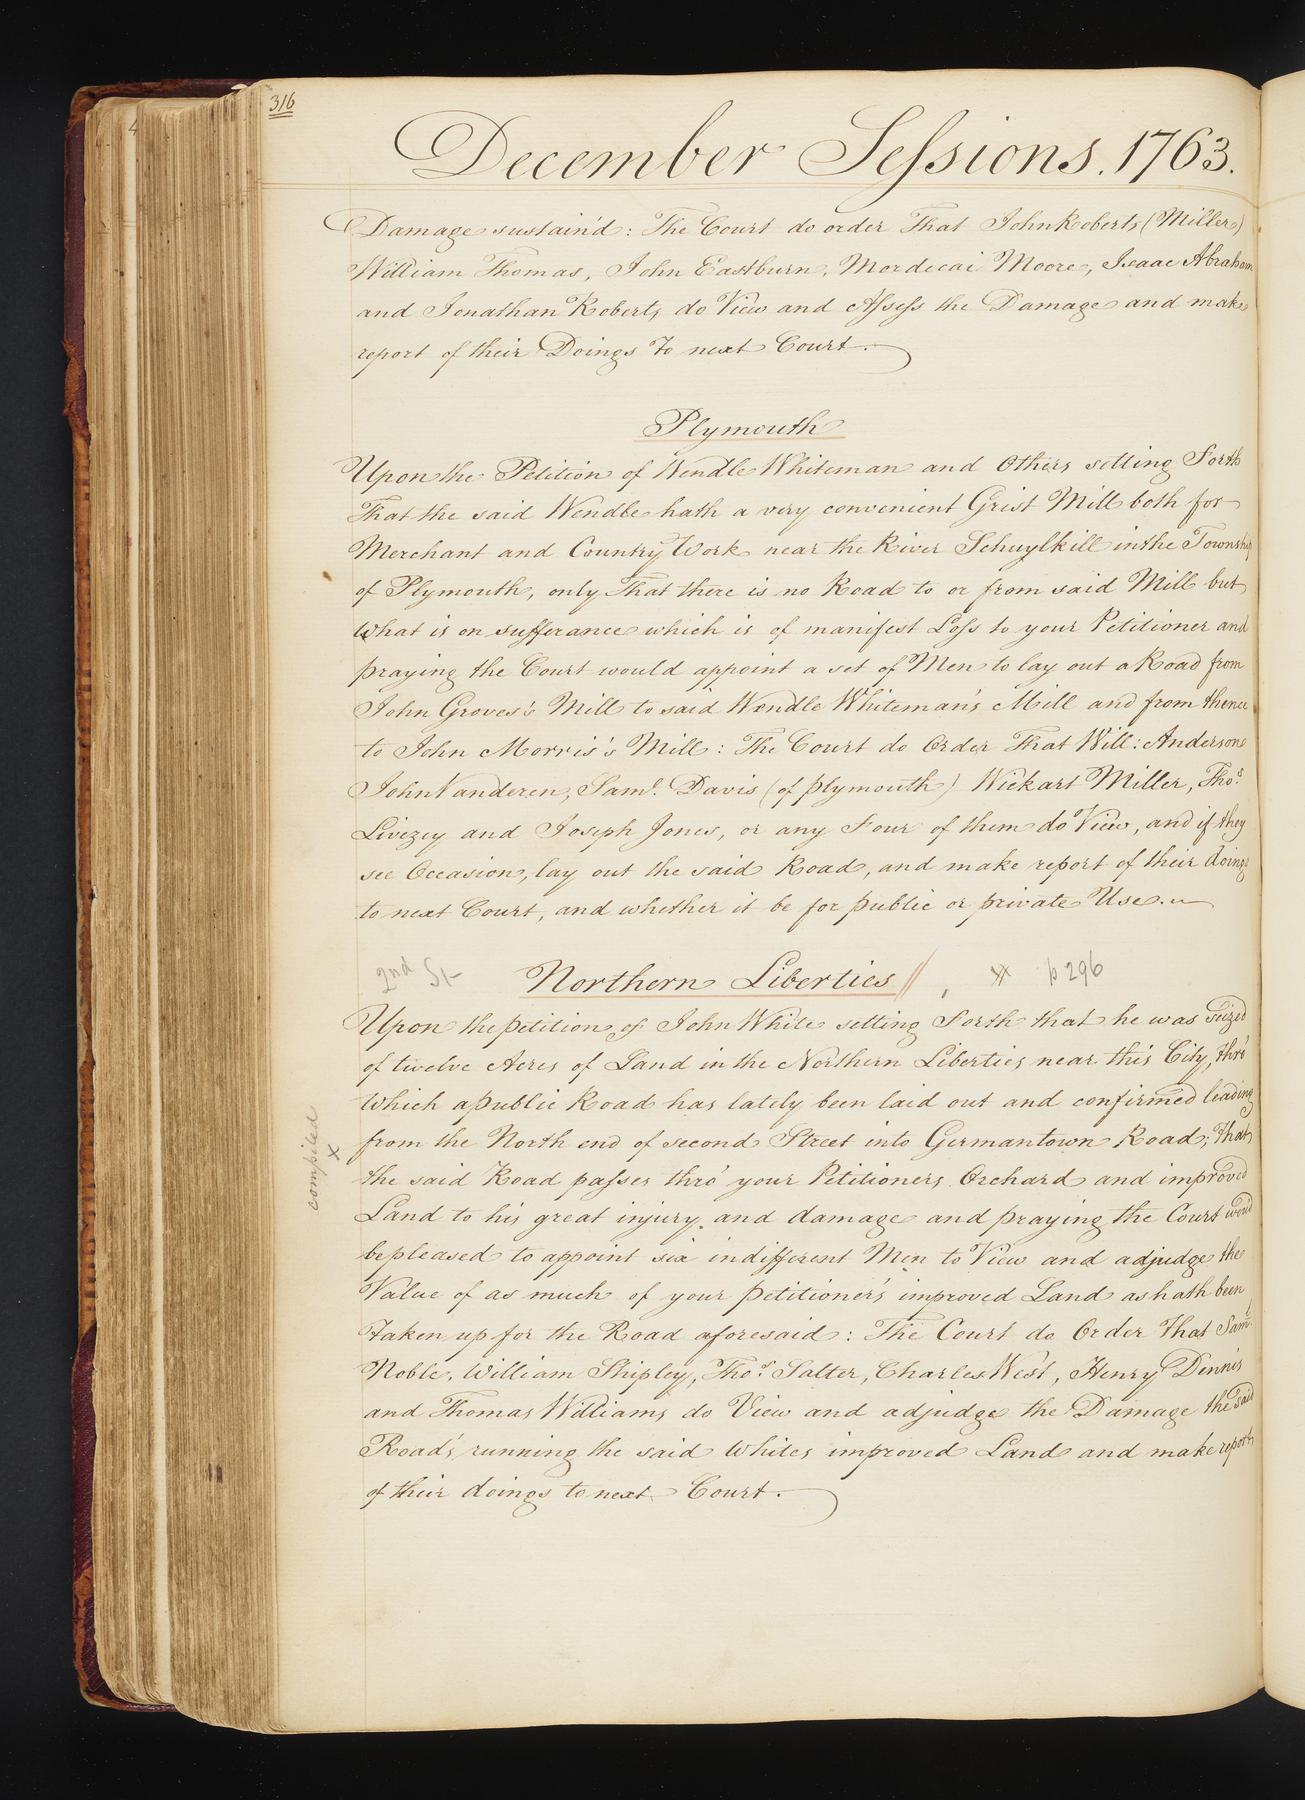 316
December Sessions. 1763.
Damage sustain'd: The Court do order That John Roberts (Miller)
William Thomas, John Eastburn, Mordecai Moore, Isaac Abraham
and Jonathan Roberts do View and Assess the Damage and make
report of their Doings To next Court.
Plymouth
Upon the Petition of Wendle Whiteman and Others setting Forth
That the said Wendle hath a very convenient Grist Mill both for
Merchant and Country Work near the River Schuylkill in the Township
of Plymouth, only That there is no Road to or from said Mill but
What is on sufferance which is of manifest Loss to your Petitioner and
praying the Court would appoint a set of Men to lay out a Road from
John Groves's Mill to said Wendle Whiteman's Mill and from thence
to John Morris's Mill: The Court do Order That Will: Anderson
John Vanderen, Saml. Davis (of plymouth) Wickart Miller, Thos.
Livezey and Joseph Jones, or any Four of them do View, and if they
see Occasion, lay out the said Road, and make report of their doings
to next Court, and whether it be for public or private Use.
2nd St- Northern Liberties // , xx p 296
Upon the petition of John White setting Forth that he was Seized
of twelve Acres of Land in the Northern Liberties near this City, thro'
Which a public Road has lately been laid out and confirmed leading
from the North end of second Street into Germantown Road; that
the said Road passes thro' your Petitioners Orchard and improved
Land to his great injury and damage and praying the Court wou'd
be pleased to appoint six indifferent Men to View and adjudge the
Value of as much of your petitioner's improved Land as hath been
Taken up for the Road aforesaid: The Court do Order That Saml.
Noble, William Shipley, Thos. Salter, Charles West, Henry Dennis
and Thomas Williams do View and adjudge the Damage the said
Road's running the said Whites improved Land and make report
of their doings to next Court.
compiled
x